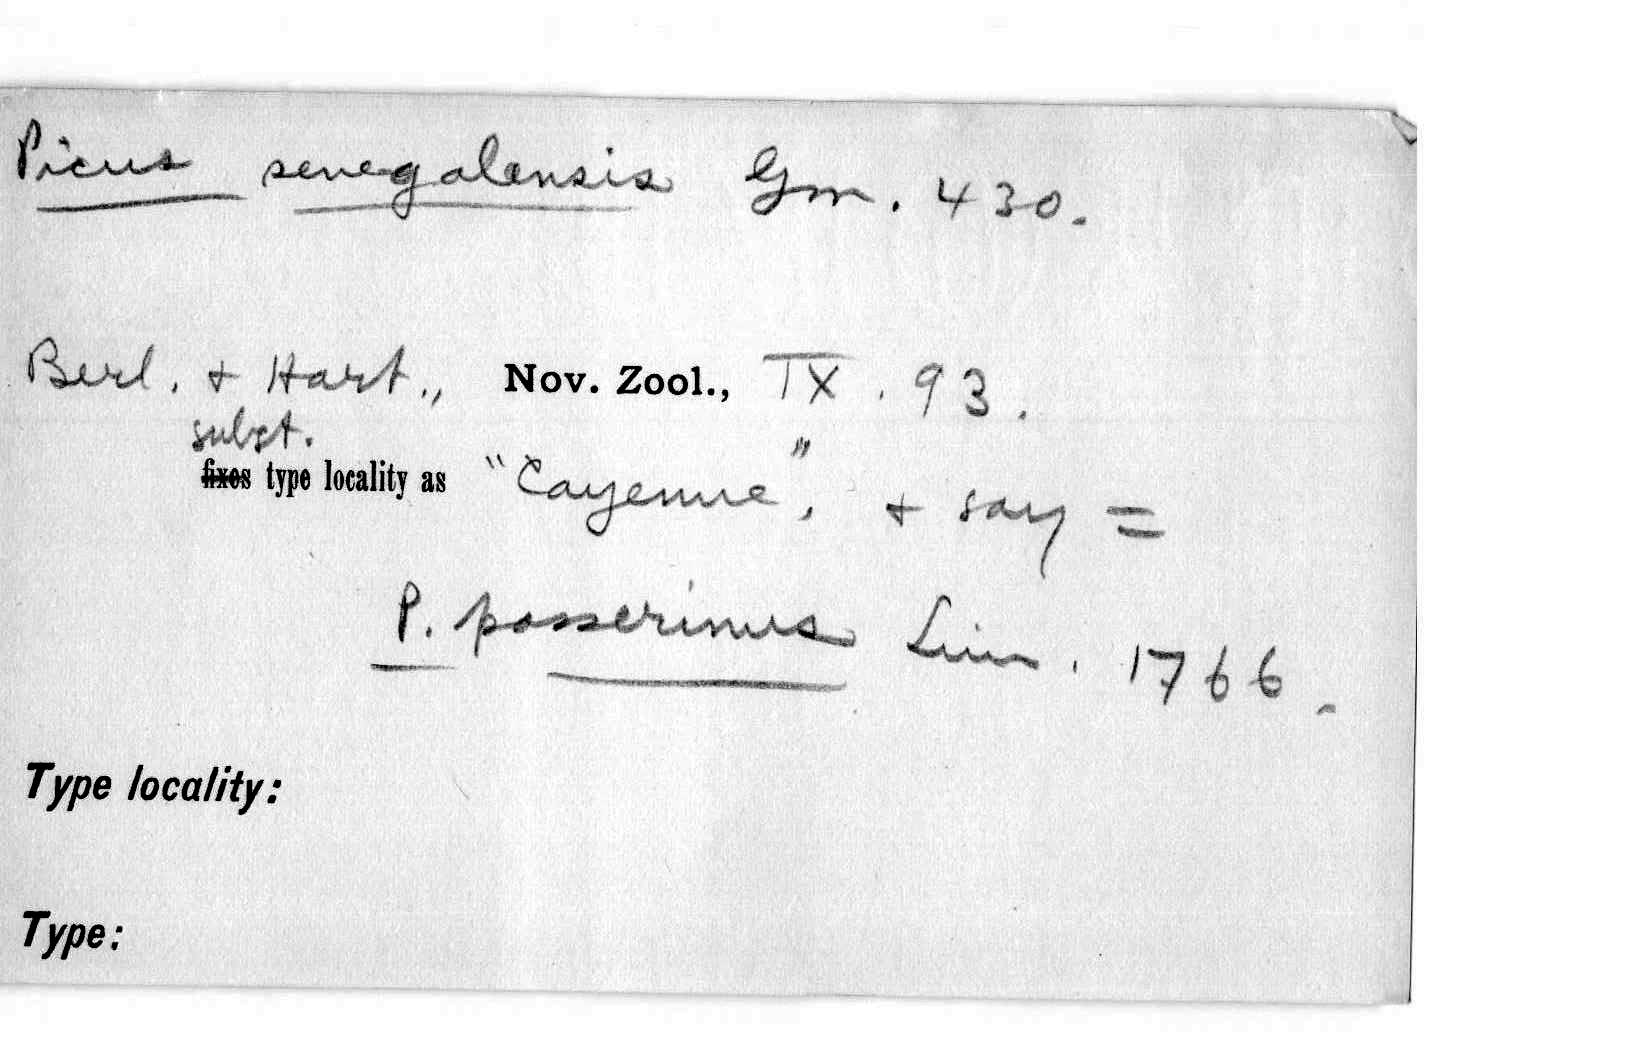 Picus senegalensis Gm. 430.
Berl. + Hart., Nov. Zool., IX. 93.
subst.
fixes type locality as "Cayenne", + say =
P. passerinus Linn. 1766.
Type locality:
Type: